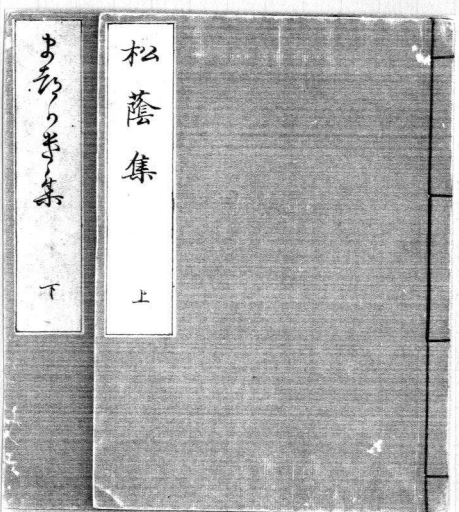 松蔭集 上
ま都可け集 下